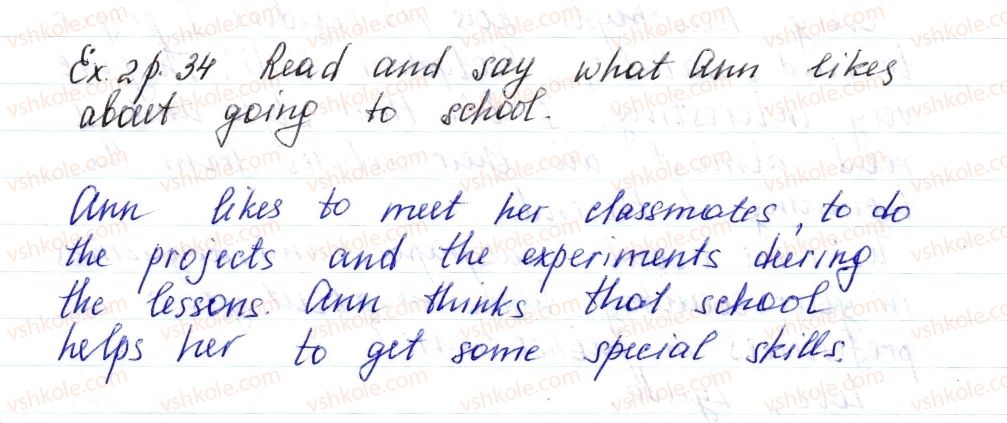 Ex. 2 p. 34 Read and say what Ann likes
about going to school.
Ann likes to meet her classmates, to do
the projects and the experiments during
the lessons. Ann thinks that school
helps her to get some special skills.